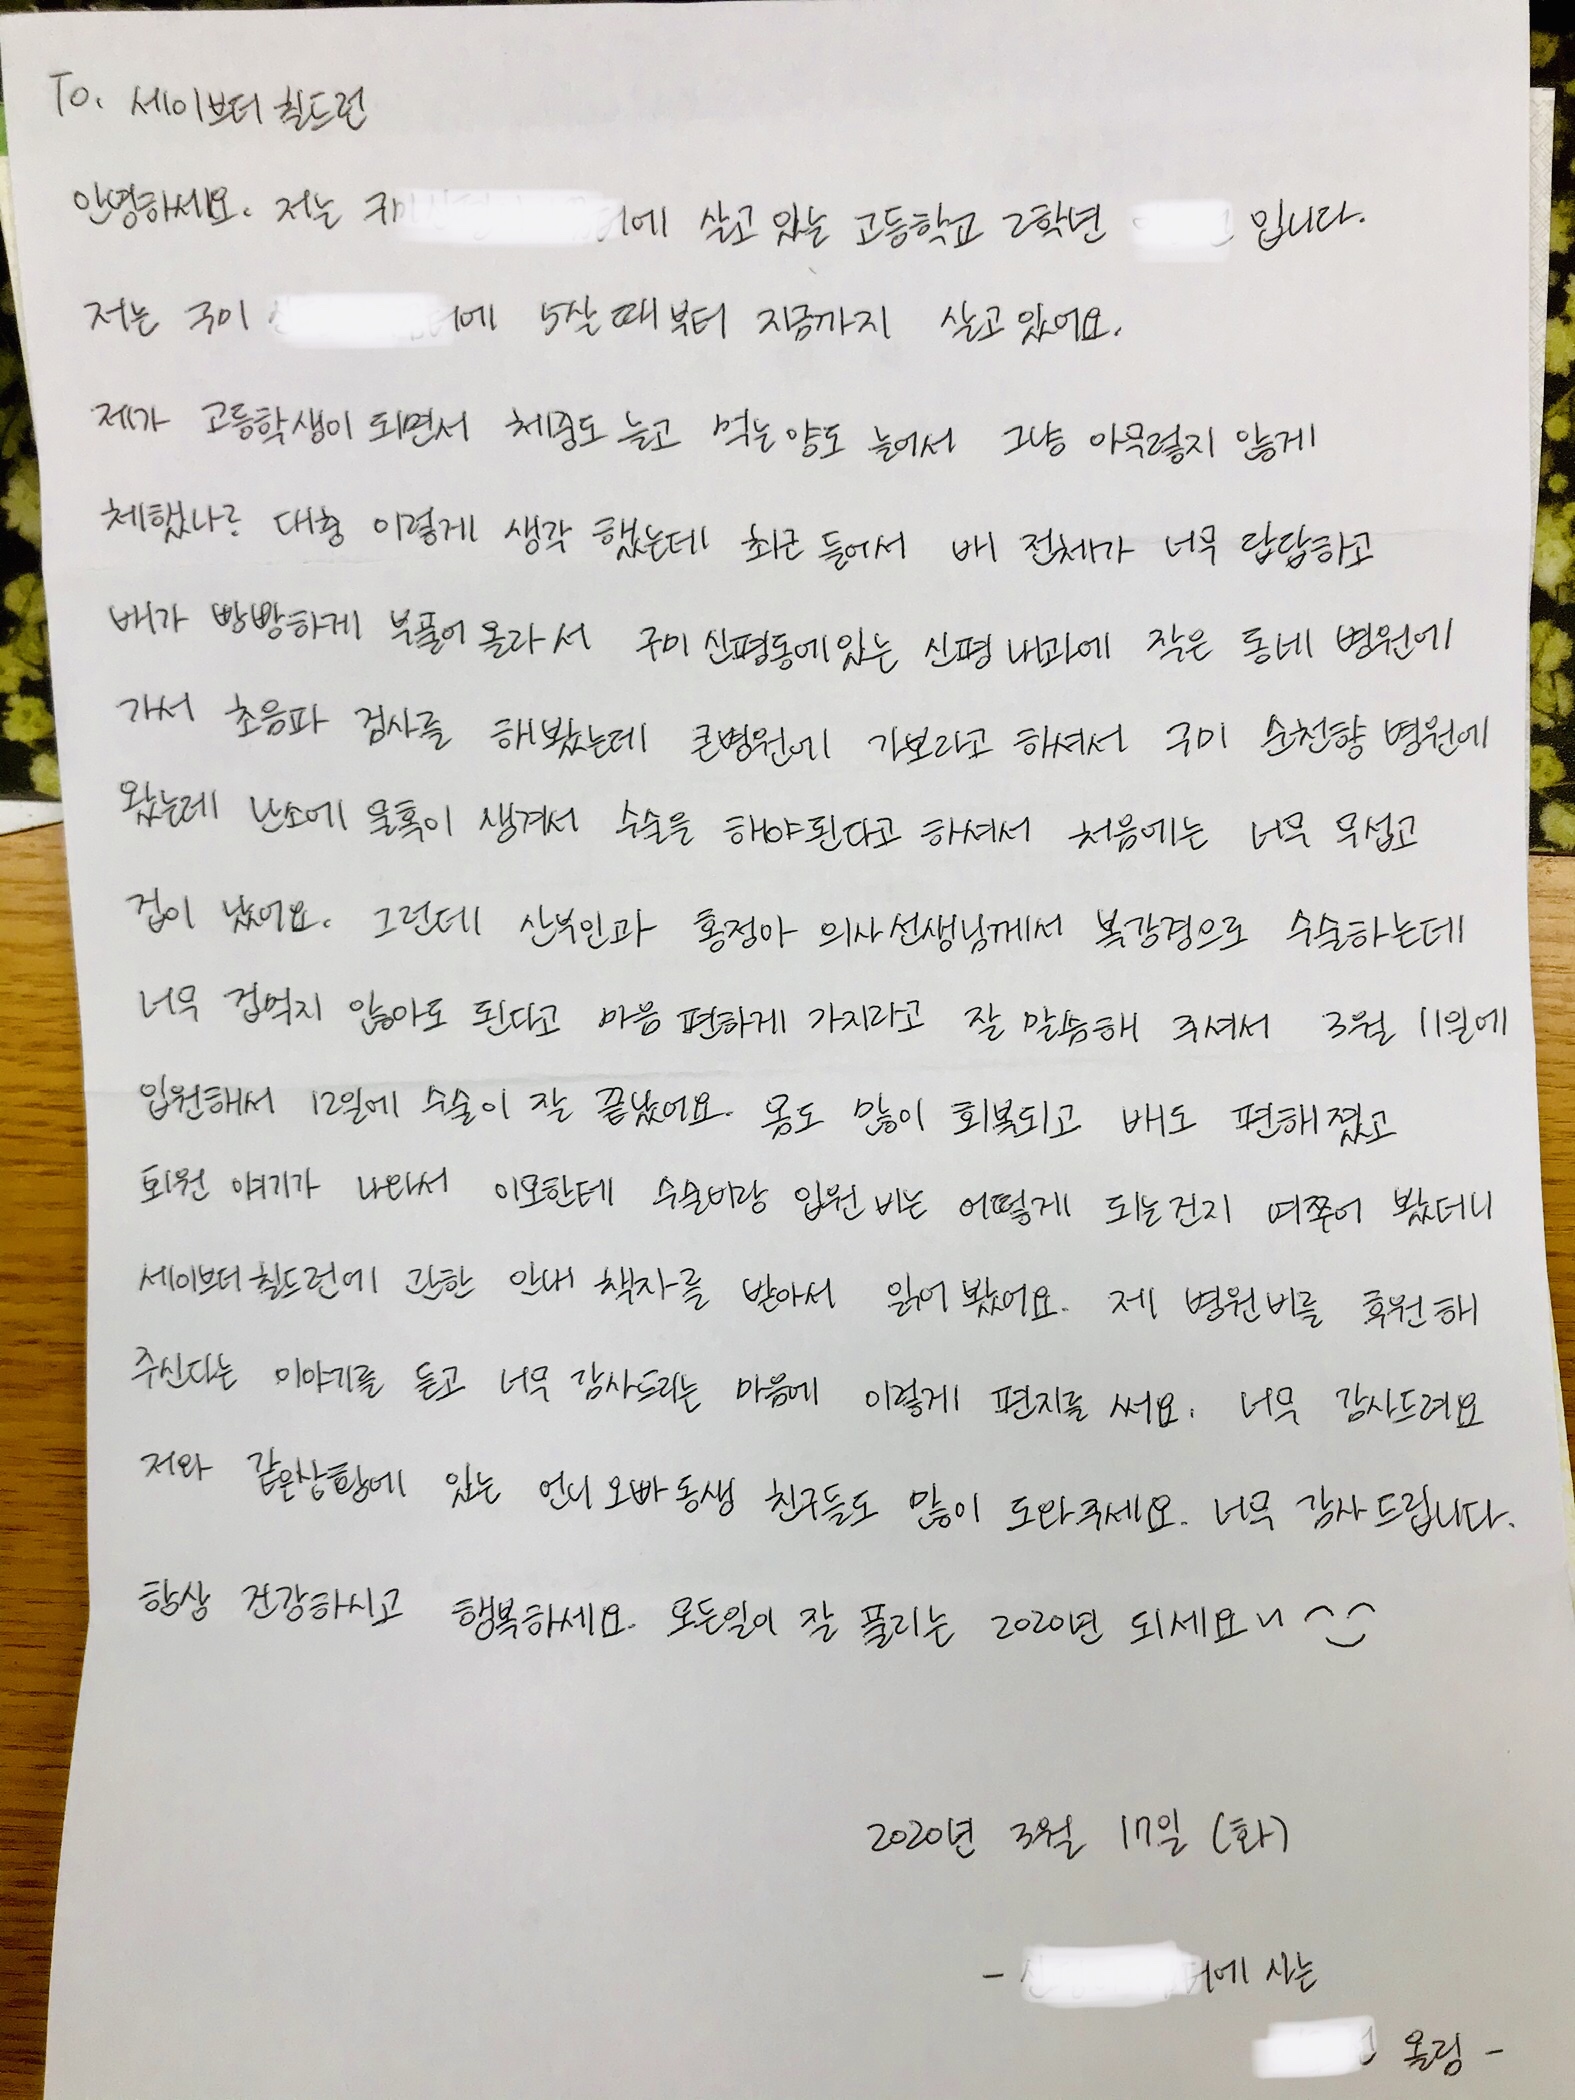 To. 세이브더 칠드런
안녕하세요. 저는 구미 에 살고 있는 고등학교 2학년 입니다.
저는 구미 에 5살 때부터 지금까지 살고 있어요.
제가 고등학생이 되면서 체중도 늘고 먹는 양도 늘어서 그냥 아무렇지 않게
체했나? 대충 이렇게 생각 했는데 최근 들어서 배 전체가 너무 답답하고
배가 빵빵하게 부풀어 올라서 구미 신평동에 있는 신평 내과에 작은 동네 병원에
가서 초음파 검사를 해봤는데 큰병원에 가보라고 하셔서 구미 순천향 병원에
왔는데 난소에 물혹이 생겨서 수술을 해야된다고 하셔서 처음에는 너무 무섭고
겁이 났어요. 그런데 산부인과 홍정아 의사선생님께서 복강경으로 수술하는데
너무 겁먹지 않아도 된다고 마음 편하게 가지라고 잘 말씀해 주셔서 3월 11일에
입원해서 12일에 수술이 잘 끝났어요. 몸도 많이 회복되고 배도 편해졌고
퇴원 얘기가 나와서 이모한테 수술비랑 입원 비는 어떻게 되는건지 여쭈어 봤더니
세이브더칠드런에 관한 안내 책자를 받아서 읽어 봤어요. 제 병원비를 후원해
주신다는 이야기를 듣고 너무 감사드리는 마음에 이렇게 편지를 써요. 너무 감사드려요
저와 같은상황에 있는 언니 오빠 동생 친구들도 많이 도와주세요. 너무 감사드립니다.
항상 건강하시고 행복하세요. 모든일이 잘 풀리는 2020년 되세요
2020년 3월 17일 (화)
- 에 사는
올림 -